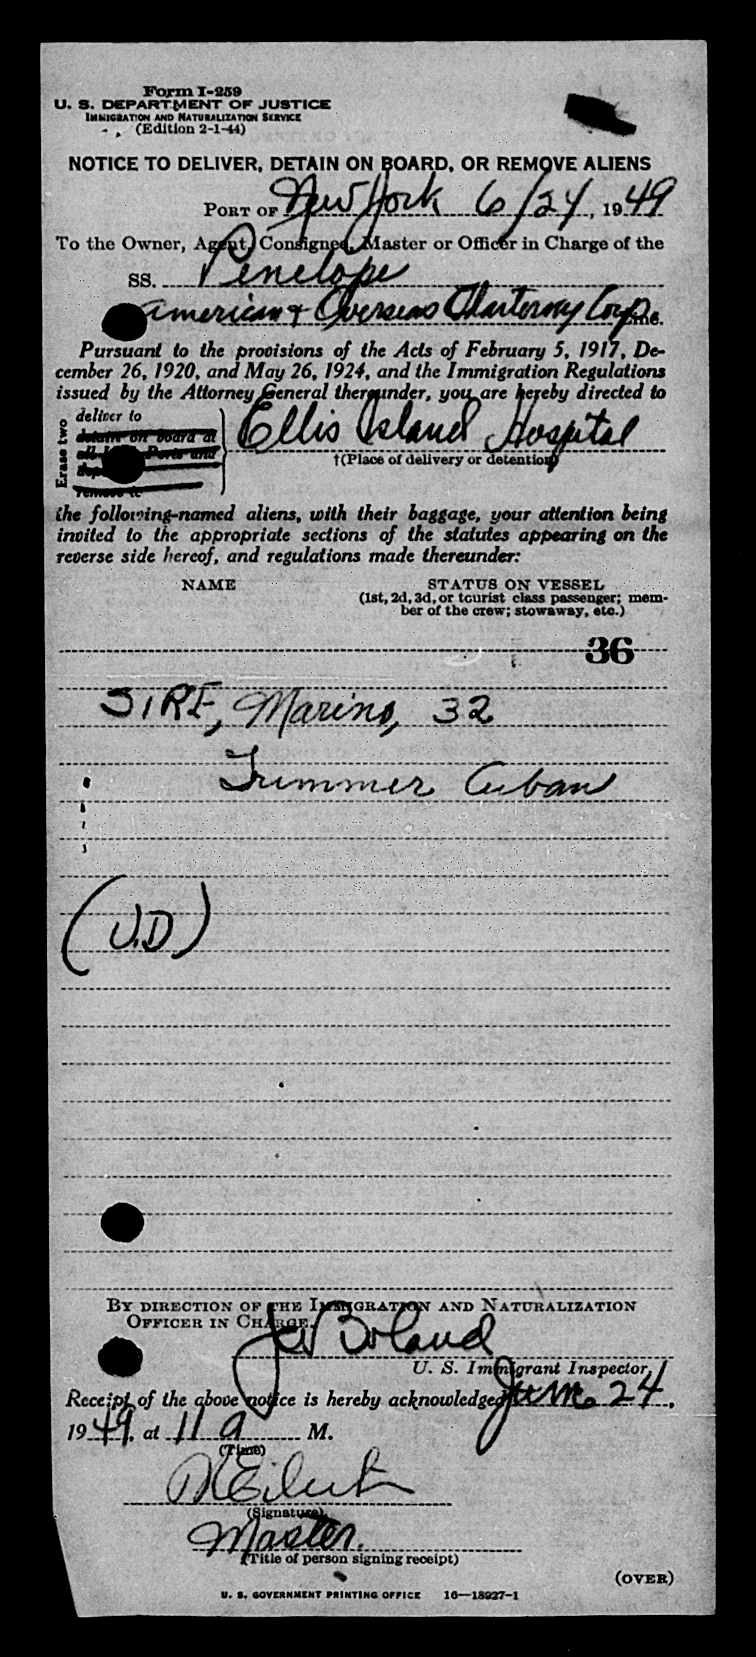 Form I-259
U. S. DEPARTMENT OF JUSTICE
IMMIGRATION AND NATURALIZATION SERVICE
(Edition 2-1-44)
NOTICE TO DELIVER, DETAIN ON BOARD, OR REMOVE ALIENS
PORT OF New York 6/24, 1949
To the Owner, Agent, Consignee, Master or Officer in Charge of the
SS. Penelope
American & Overseas Chartering Corp. Inc.
Pursuant to the provisions of the Acts of February 5, 1917, De-
cember 26, 1920, and May 26, 1924, and the Immigration Regulations
issued by the Attorney General thereunder, you are hereby directed to
Erase two
deliver to
detain on board at
all Ports and
remove to
Ellis Island Hospital
†(Place of delivery or detention)
the following-named aliens, with their baggage, your attention being
invited to the appropriate sections of the statutes appearing on the
reverse side hereof, and regulations made thereunder:
NAME STATUS ON VESSEL
(1st, 2d, 3d, or tourist class passenger; mem-
ber of the crew; stowaway, etc.)
36
SIRE, Marino, 32
Trimmer Cuban
(V.D)
BY DIRECTION OF THE IMMIGRATION AND NATURALIZATION
OFFICER IN CHARGE.
Boland
U. S. Immigrant Inspector.
Receipt of the above notice is hereby acknowledged June 24,
1949, at 11 a M.
(Time)
(Signature)
Master.
(Title of person signing receipt)
(OVER)
U. S. GOVERNMENT PRINTING OFFICE 16—18927-1